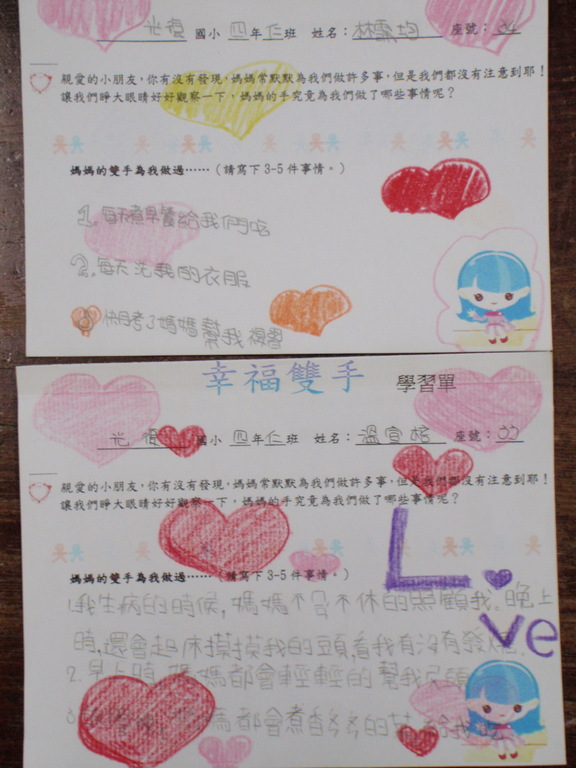 光復 國小 四年仁班 姓名：林霈均 座號：
親愛的小朋友，你有沒有發現，媽媽常默默為我們做許多事，但是我們都沒有注意到耶！
讓我們睜大眼睛好好觀察一下，媽媽的手究竟為我們做了哪些事情呢？
媽媽的雙手為我做過……（請寫下3-5件事情。）
1.每天煮早餐給我們吃
2.每天洗我的衣服
快月考了媽媽幫我複習
幸福雙手 學習單
光復 國小 四年仁班 姓名：溫宣 座號：
親愛的小朋友，你有沒有發現，媽媽常默默為我們做許多事，但是我們都沒有注意到耶！
讓我們睜大眼睛好好觀察一下，媽媽的手究竟為我們做了哪些事情呢？
媽媽的雙手為我做過……（請寫下3-5件事情。）
L
ve
1.我生病的時候，媽媽不眠不休的照顧我。晚上
時，還會起床摸摸我的頭，看我有沒有發燒。
2.早上時，媽媽都會輕輕的幫我
3. 媽都會煮香 的 給我吃